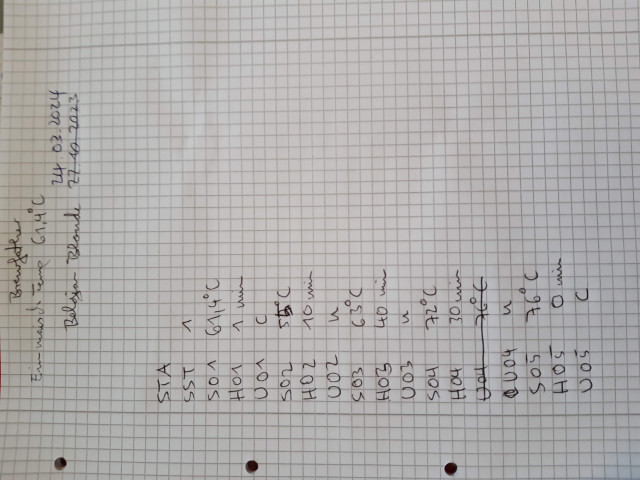 Brewfather
Einmaischtemp 61,4°C
24.03.2024
Belgian Blonde 27.10.2023
STA
SST 1
S01 61,4°C
H01 1 min
U01 C
S02 °C
H02 10 min
U02 u
S03 63°C
H03 40 min
U03 u
S04 72°C
H04 30 min
U04 76°C
U04 u
S05 76°C
H05 0 min
U05 C